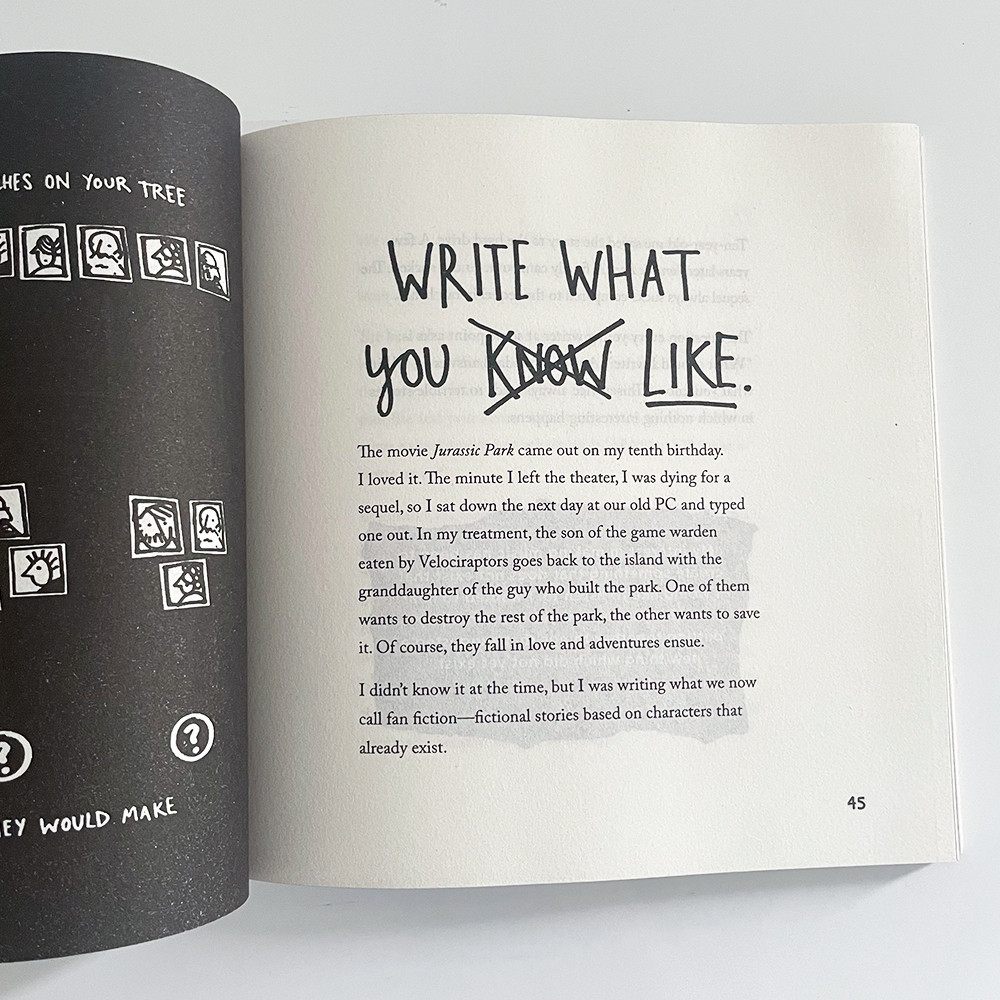 HES ON YOUR TREE
?
?
EY WOULD MAKE
WRITE WHAT
YOU KNOW LIKE.
The movie Jurassic Park came out on my tenth birthday.
I loved it. The minute I left the theater, I was dying for a
sequel, so I sat down the next day at our old PC and typed
one out. In my treatment, the son of the game warden
eaten by Velociraptors goes back to the island with the
granddaughter of the guy who built the park. One of them
wants to destroy the rest of the park, the other wants to save
it. Of course, they fall in love and adventures ensue.
I didn’t know it at the time, but I was writing what we now
call fan fiction—fictional stories based on characters that
already exist.
45